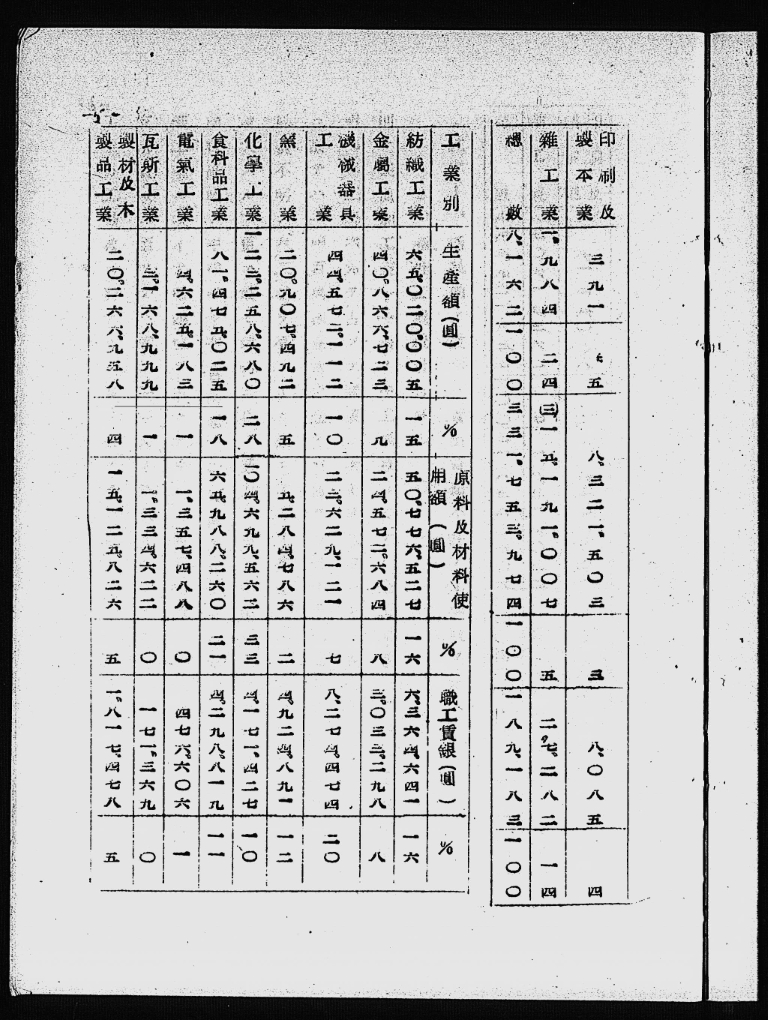 印刷及製本業 三九一 五 八、三二一、五〇三 三 八、〇八五 四
雜工業 一、九八四 二四 (三)一五、一九一、〇〇七 五 二七、二八二 一四
總數 八、一六二 一〇〇 三三一、七五三、九七四 一〇〇 一八九、一八三 一〇〇
工業別 生産額(圓) % 原料及材料使用額(圓) % 職工賃銀(圓) %
紡織工業 六五、〇二〇、〇〇五 一五 五〇、七七六、五二七 一六 六、三六四、六四一 一六
金屬工業 四〇、八六六、七二三 九 二四、五七二、六八四 八 三、〇三三、二九八 八
機械器具工業 四四、五七二、一一二 一〇 二二、六二九、一二一 七 八、二七四、四七四 二〇
窯業 二〇、九〇七、四九二 五 五、二八四、七八六 二 四、九二四、八九一 一二
化學工業 一二三、二五八、六八〇 二八 一〇四、六九九、五六二 三三 四、一七一、四二七 一〇
食料品工業 八一、四七五、〇二五 一八 六五、九八八、二六〇 二一 四、二九八、八一九 一一
電氣工業 四、六二五、一八三 一 一、三五七、四八八 〇 四七六、六〇六 一
瓦斯工業 三、一六八、九九九 一 一、三三四、六二二 〇 一七一、三六九 〇
製材及木製品工業 二〇、二六六、九五八 四 一五、一二五、八二六 五 一、八一七、四七八 五